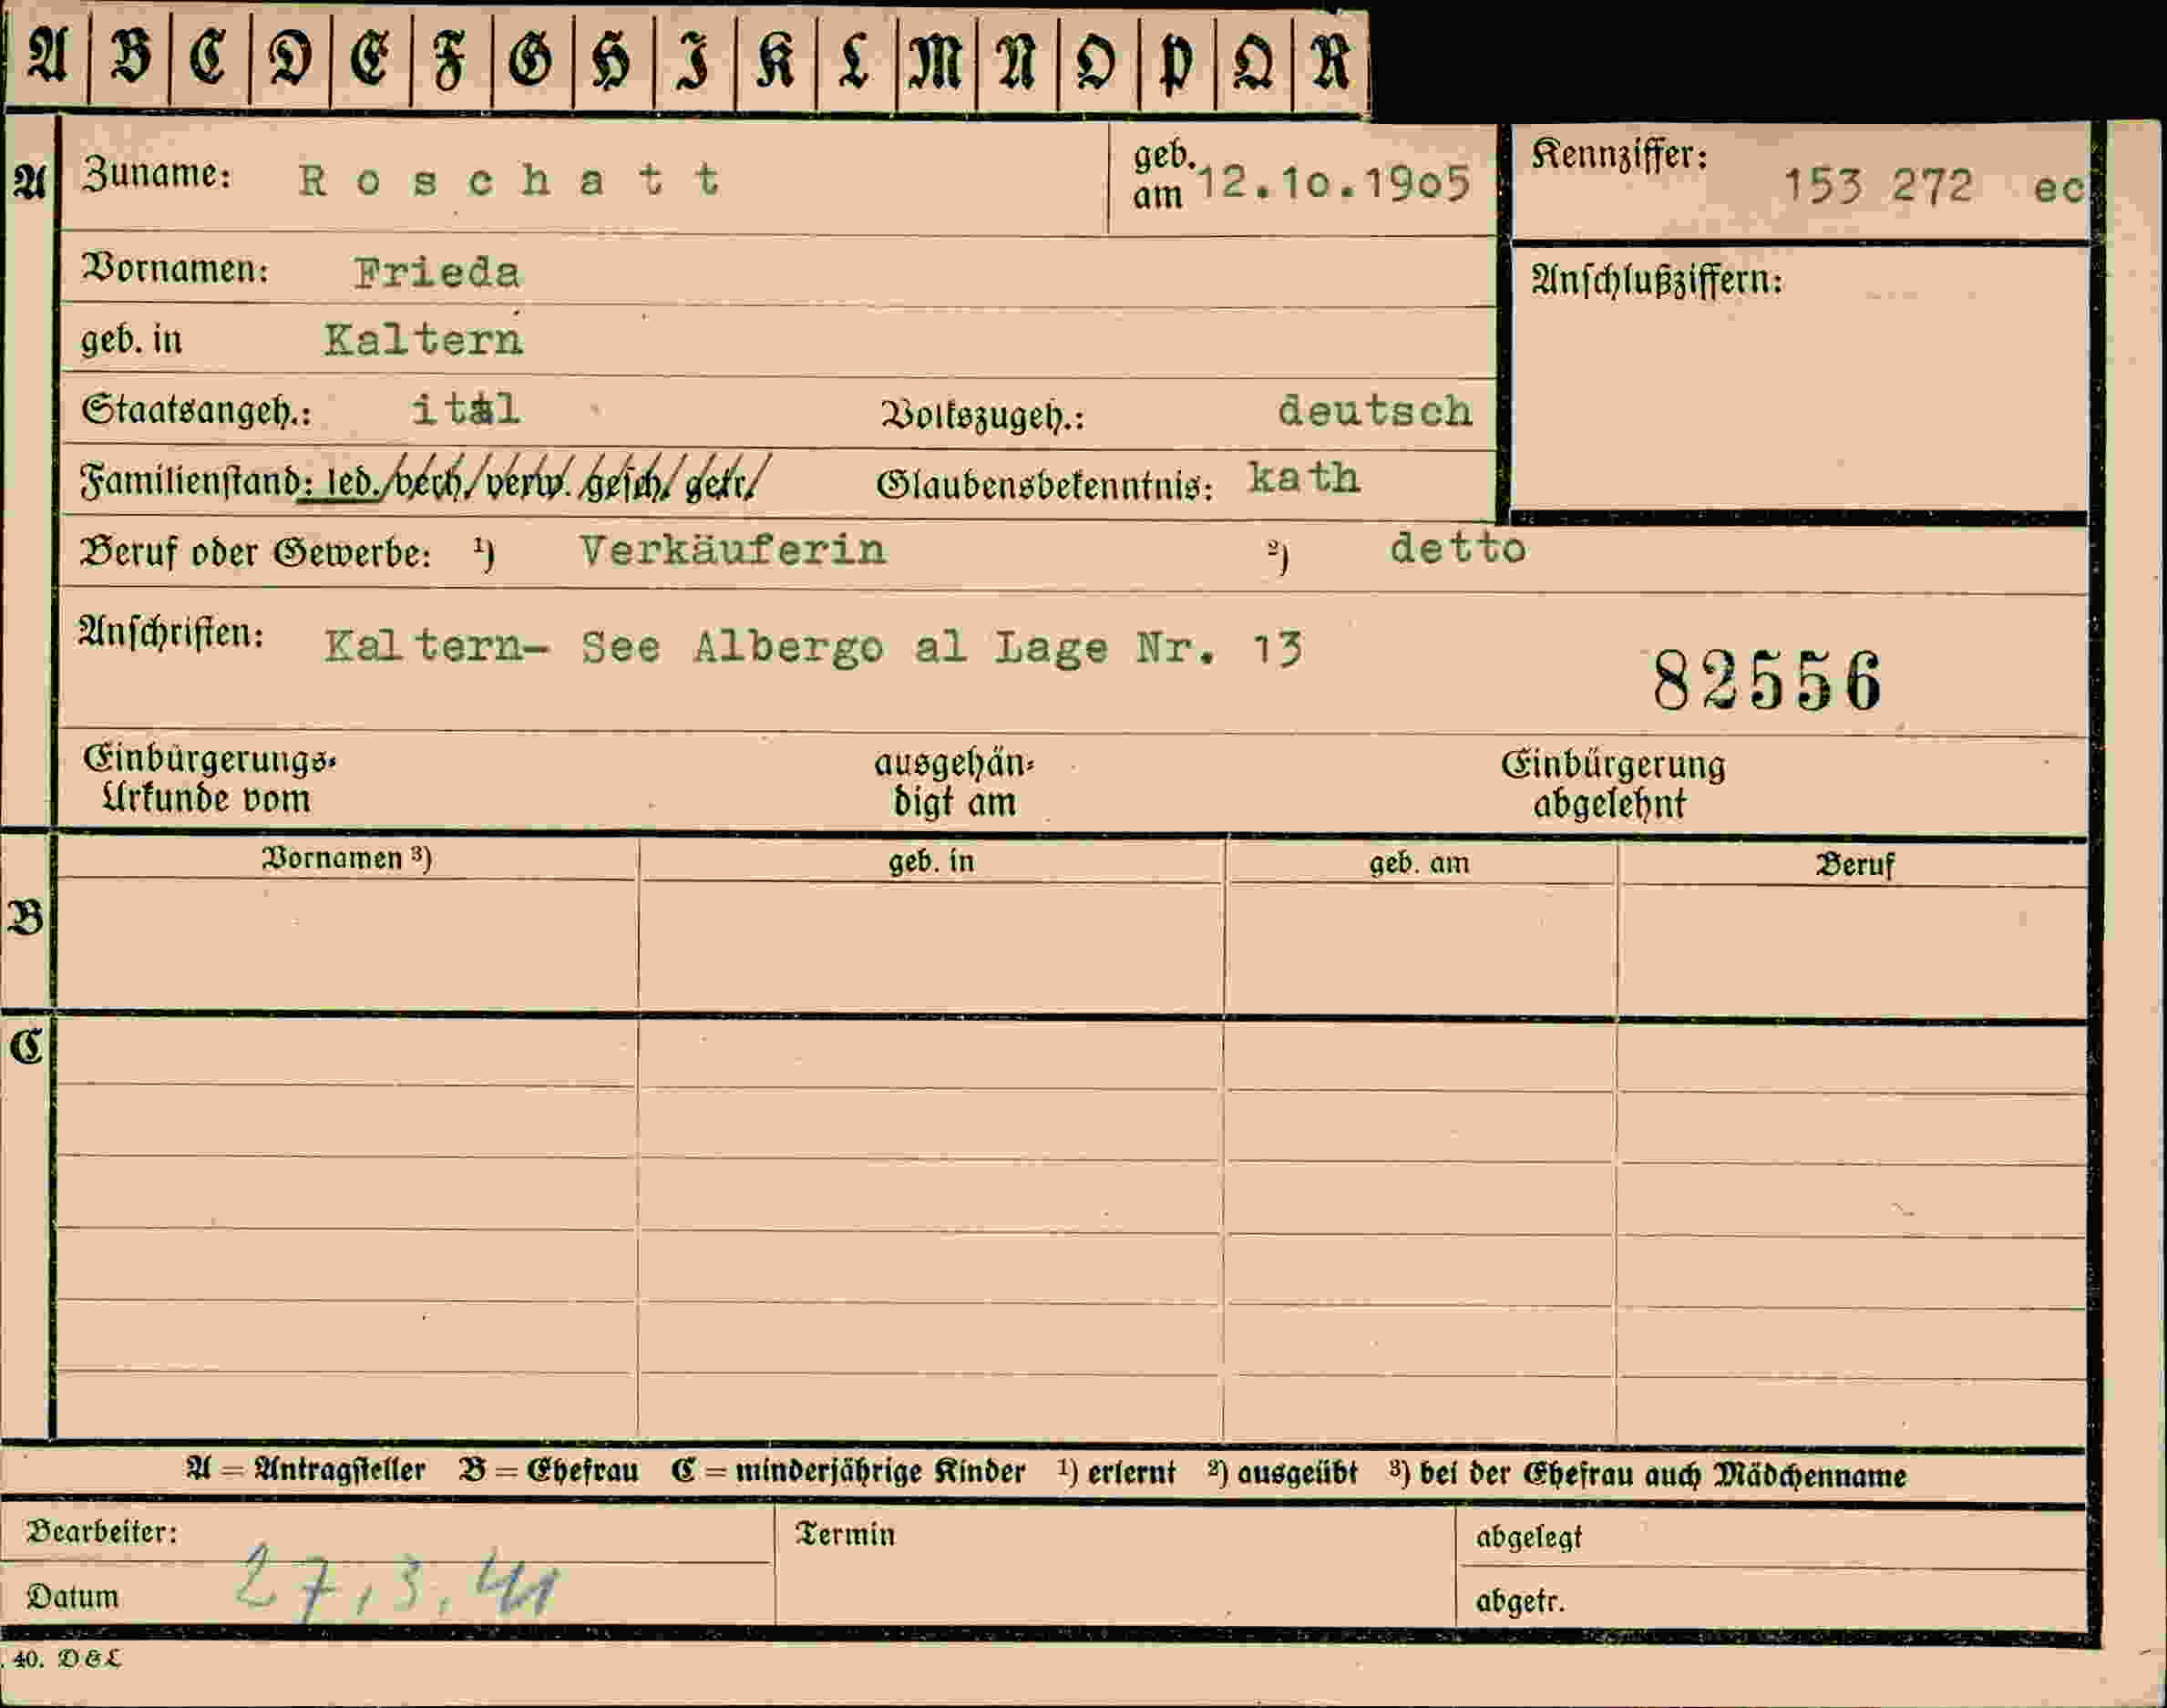 A B C D E F G H I K L M N O P Q R
A Zuname: Roschatt geb. am 12.10.1905 Kennziffer: 153 272 ec
Vornamen: Frieda Anschlußziffern:
geb. in Kaltern
Staatsangeh.: ital Volkszugeh.: deutsch
Familienstand: led./verh./verw./gesch./getr./ Glaubensbekenntnis: kath
Beruf oder Gewerbe: ¹) Verkäuferin ²) detto
Anschriften: Kaltern- See Albergo al Lage Nr. 13
82556
Einbürgerungs-Urkunde vom ausgehändigt am Einbürgerung abgelehnt
Vornamen ³) geb. in geb. am Beruf
B
C
A = Antragsteller B = Ehefrau C = minderjährige Kinder ¹) erlernt ²) ausgeübt ³) bei der Ehefrau auch Mädchenname
Bearbeiter: Termin abgelegt
Datum 27.3.41 abgetr.
40. D&L